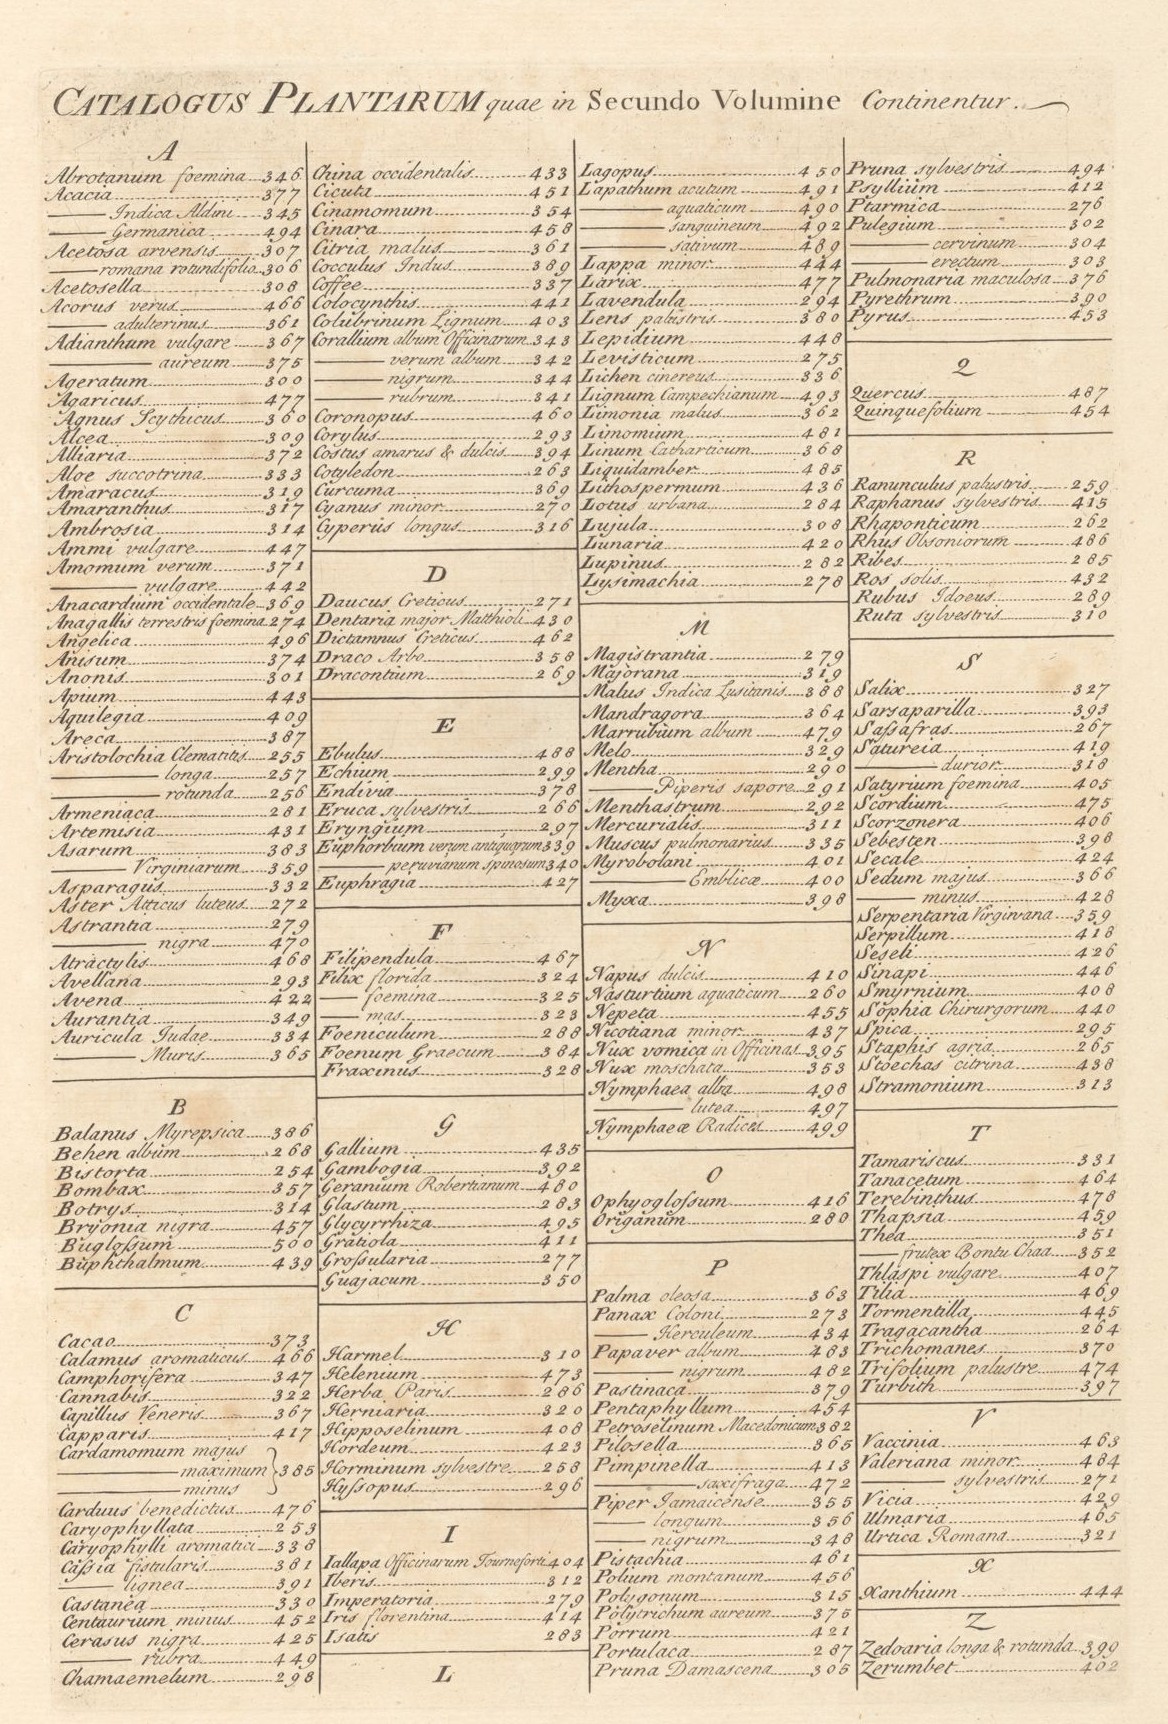 CATALOGUS PLANTARUM quae in Secundo Volumine Continentur.
A
Abrotanum foemina 346
Acacia 377
— Indica Aldini 345
— Germanica 494
Acetosa arvensis 307
— romana rotundifolia 306
Acetosella 308
Acorus verus 466
— adulterinus 361
Adianthum vulgare 367
— aureum 375
Ageratum 300
Agaricus 477
Agnus Scythicus 360
Alcea 309
Alliaria 372
Aloe succotrina 333
Amaracus 319
Amaranthus 317
Ambrosia 314
Ammi vulgare 447
Amomum verum 371
— vulgare 442
Anacardium occidentale 369
Anagallis terrestris foemina 274
Angelica 496
Anisum 374
Anonis 301
Apium 443
Aquilegia 409
Areca 387
Aristolochia Clematitis 255
— longa 257
— rotunda 256
Armeniaca 281
Artemisia 431
Asarum 383
— Virginiarum 359
Asparagus 332
Aster Atticus luteus 272
Astrantia 279
— nigra 470
Atractylis 468
Avellana 293
Avena 422
Aurantia 349
Auricula Judae 334
— Muris 365
B
Balanus Myrepsica 386
Behen album 268
Bistorta 254
Bombax 357
Botrys 314
Bryonia nigra 457
Buglossum 500
Buphthalmum 439
C
Cacao 373
Calamus aromaticus 466
Camphorifera 347
Cannabis 322
Capillus Veneris 367
Capparis 417
Cardamomum majus
— maximum } 385
— minus
Carduus benedictus 476
Caryophyllata 253
Caryophylli aromatici 338
Cassia fistularis 381
— lignea 391
Castanea 330
Centaurium minus 452
Cerasus nigra 425
— rubra 449
Chamaemelum 298
China occidentalis 433
Cicuta 451
Cinamomum 354
Cinara 458
Citria malus 361
Cocculus Indus 389
Coffee 337
Colocynthis 441
Colubrinum Lignum 403
Corallium album Officinarum 343
— verum album 342
— nigrum 344
— rubrum 341
Coronopus 460
Corylus 293
Costus amarus & dulcis 394
Cotyledon 263
Curcuma 369
Cyanus minor 270
Cyperus longus 316
D
Daucus Creticus 271
Dentaria major Matthioli 430
Dictamnus Creticus 462
Draco Arbo 358
Dracontium 269
E
Ebulus 488
Echium 299
Endivia 378
Eruca sylvestris 266
Eryngium 297
Euphorbium verum antiquorum 339
— peruvianum spinosum 340
Euphragia 427
F
Filipendula 467
Filix florida 324
— foemina 325
— mas 323
Foeniculum 288
Foenum Graecum 384
Fraxinus 328
G
Gallium 435
Gambogia 392
Geranium Robertianum 480
Glastum 283
Glycyrrhiza 495
Gratiola 411
Grossularia 277
Guajacum 350
H
Harmel 310
Helenium 473
Herba Paris 286
Herniaria 320
Hipposelinum 408
Hordeum 423
Horminum sylvestre 258
Hyssopus 296
I
Iallapa Officinarum Tourneforti 404
Iberis 312
Imperatoria 279
Iris florentina 414
Isatis 283
L
Lagopus 450
Lapathum acutum 491
— aquaticum 490
— sanguineum 492
— sativum 489
Lappa minor 444
Larix 477
Lavendula 294
Lens palustris 380
Lepidium 448
Levisticum 275
Lichen cinereus 336
Lignum Campechianum 493
Limonia malus 362
Limomium 481
Linum Catharticum 368
Liquidamber 485
Lithospermum 436
Lotus urbana 284
Lujula 308
Lunaria 420
Lupinus 282
Lysimachia 278
M
Magistrantia 279
Majorana 319
Malus Indica Lusitanis 388
Mandragora 364
Marrubium album 479
Melo 329
Mentha 290
— Piperis sapore 291
Menthastrum 292
Mercurialis 311
Muscus pulmonarius 335
Myrobolani 401
— Emblicæ 400
Myxa 398
N
Napus dulcis 410
Nasturtium aquaticum 260
Nepeta 455
Nicotiana minor 437
Nux vomica in Officinas 395
Nux moschata 353
Nymphaea alba 498
— lutea 497
Nymphaeæ Radices 499
O
Ophyoglossum 416
Origanum 280
P
Palma oleosa 363
Panax Coloni 273
— Herculeum 434
Papaver album 483
— nigrum 482
Pastinaca 379
Pentaphyllum 454
Petroselinum Macedonicum 382
Pilosella 365
Pimpinella 413
— saxifraga 472
Piper Jamaicense 355
— longum 356
— nigrum 348
Pistachia 461
Polium montanum 456
Polygonum 315
Polytrichum aureum 375
Porrum 421
Portulaca 287
Pruna Damascena 305
Pruna sylvestris 494
Psyllium 412
Ptarmica 276
Pulegium 302
— cervinum 304
— erectum 303
Pulmonaria maculosa 376
Pyrethrum 390
Pyrus 453
Q
Quercus 487
Quinquefolium 454
R
Ranunculus palustris 259
Raphanus sylvestris 415
Rhaponticum 262
Rhus Obsoniorum 486
Ribes 285
Ros solis 432
Rubus Idoeus 289
Ruta sylvestris 310
S
Salix 327
Sarsaparilla 393
Sassafras 267
Satureia 419
— durior 318
Satyrium foemina 405
Scordium 475
Scorzonera 406
Sebesten 398
Secale 424
Sedum majus 366
— minus 428
Serpentaria Virginiana 359
Serpillum 418
Seseli 426
Sinapi 446
Smyrnium 408
Sophia Chirurgorum 440
Spica 295
Staphis agria 265
Stoechas citrina 438
Stramonium 313
T
Tamariscus 331
Tanacetum 464
Terebinthus 478
Thapsia 459
Thea 351
— frutex Bontu Chaa 352
Thlaspi vulgare 407
Tilia 469
Tormentilla 445
Tragacantha 264
Trichomanes 370
Trifolium palustre 474
Turbith 397
V
Vaccinia 463
Valeriana minor 484
— sylvestris 271
Vicia 429
Ulmaria 465
Urtica Romana 321
X
Xanthium 444
Z
Zedoaria longa & rotunda 399
Zerumbet 402